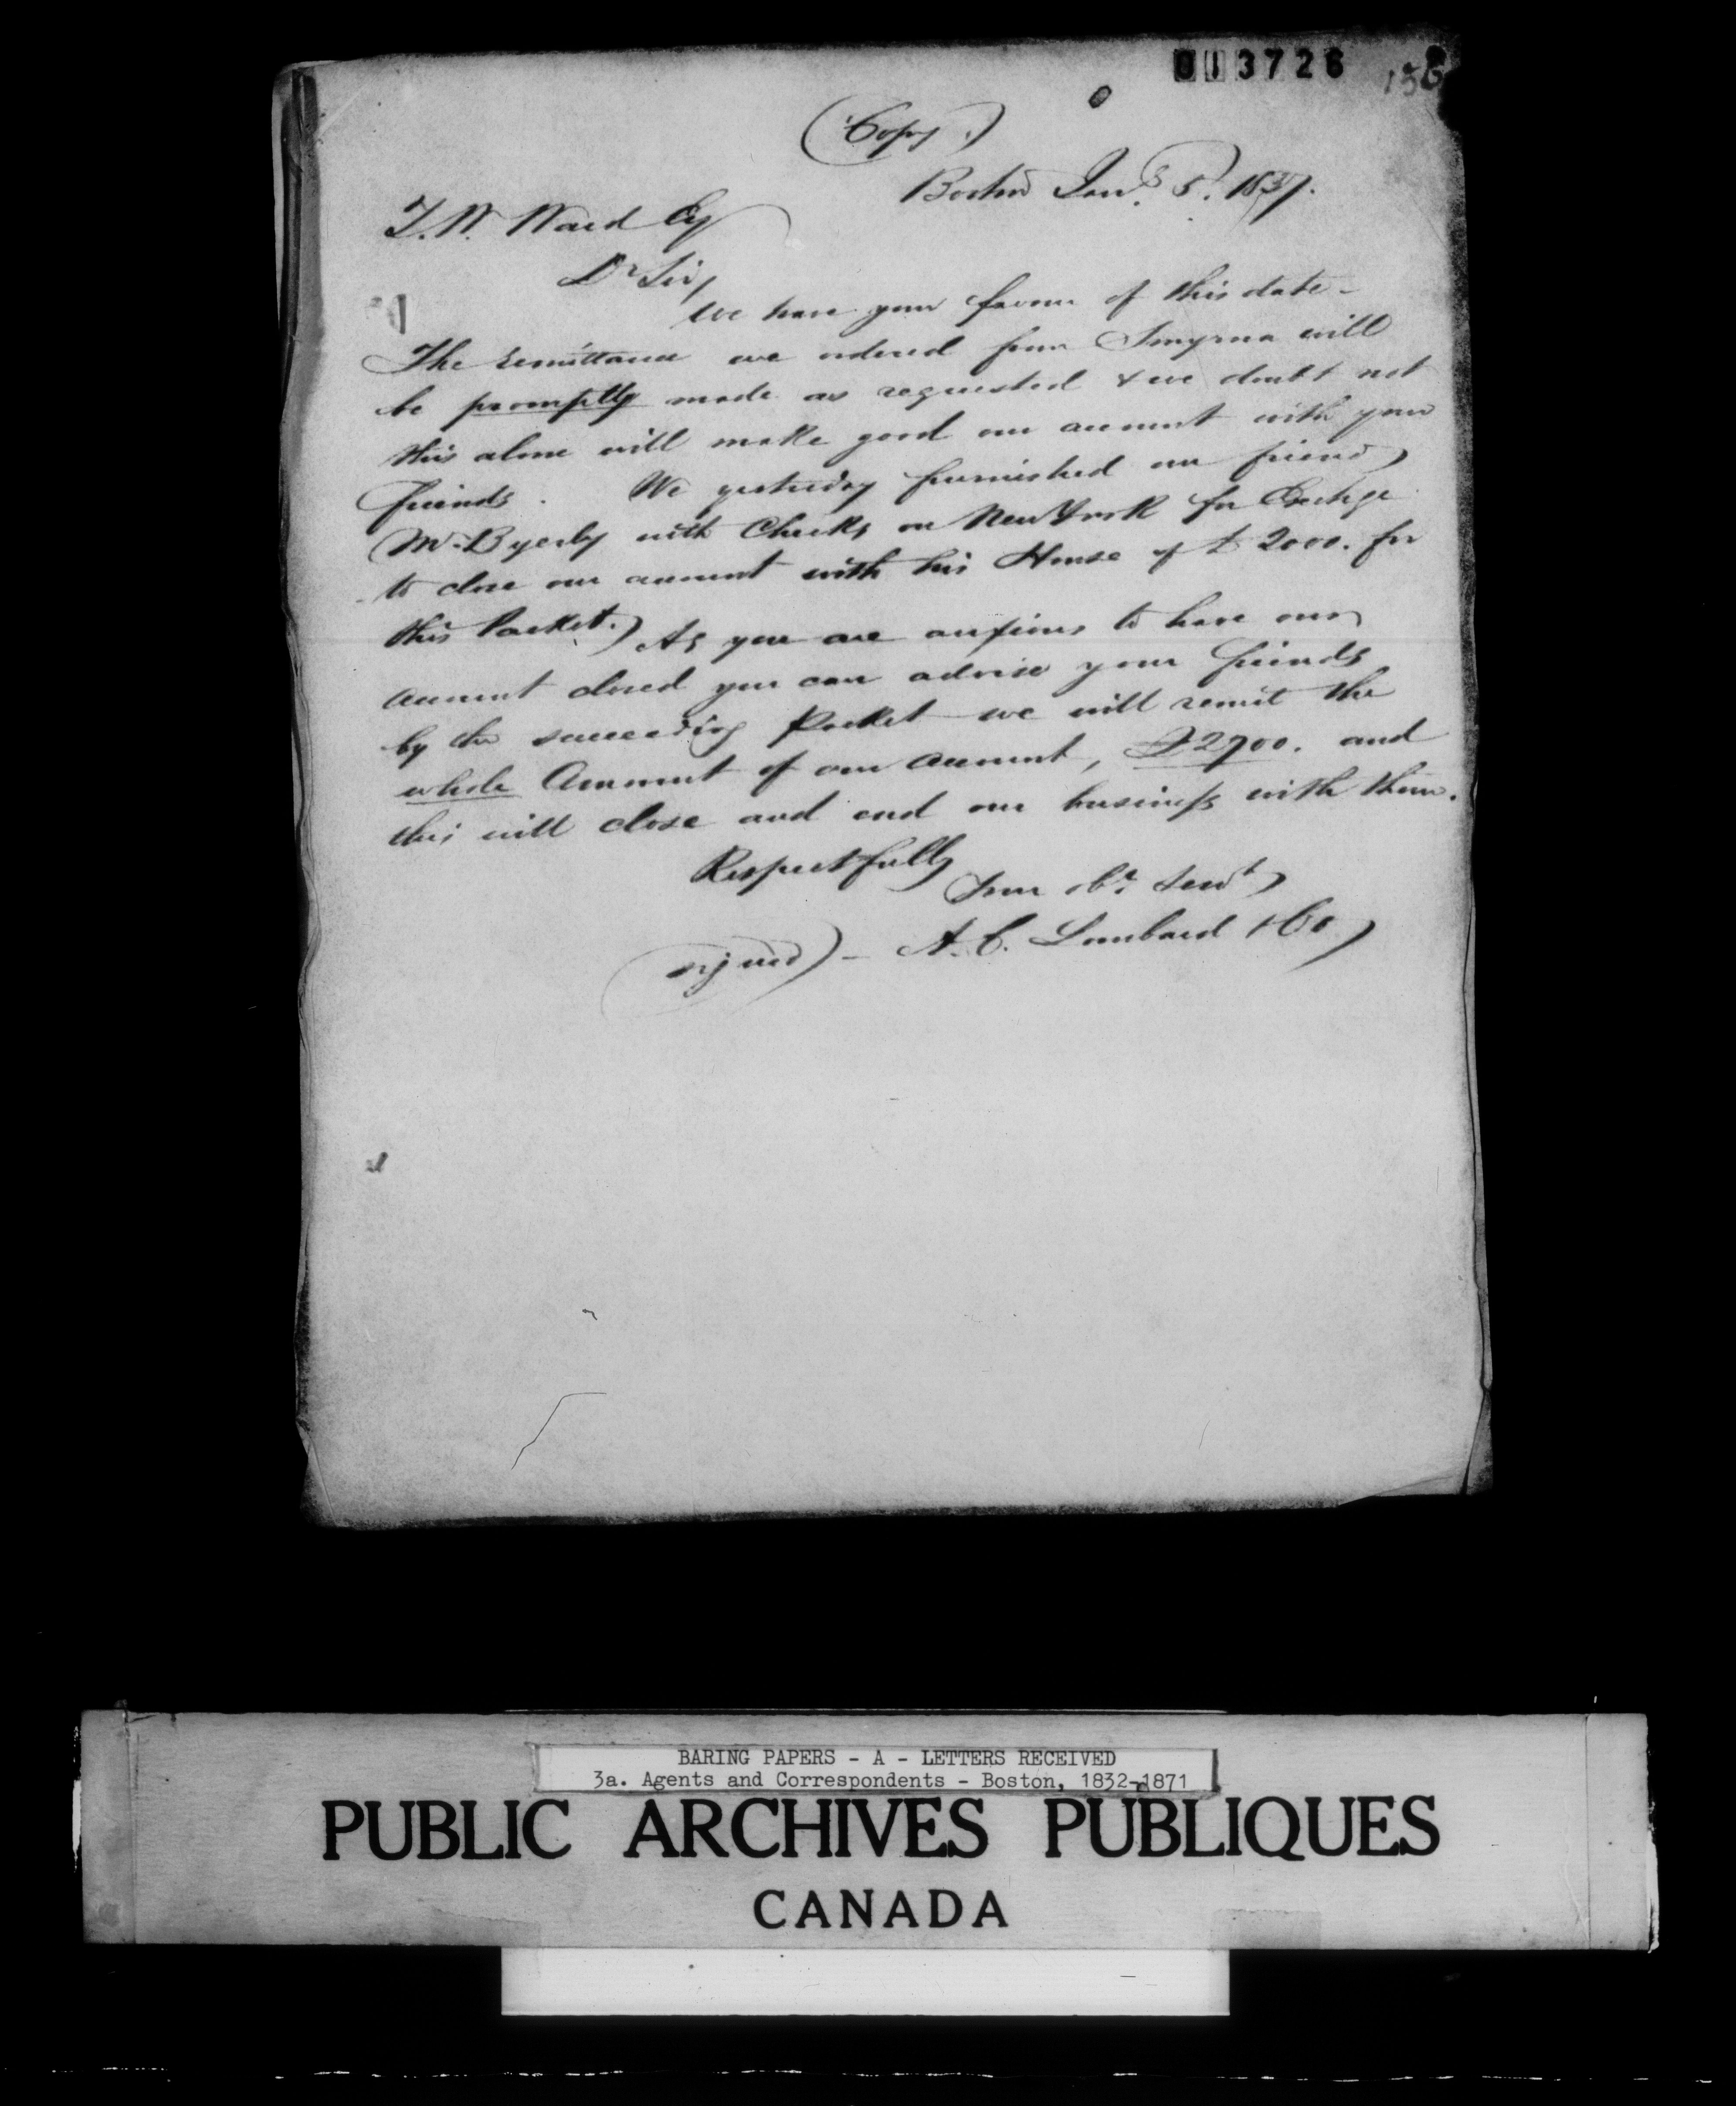 013726
(Copy.)
Boston Jany. 5. 1837.
T. W. Ward Esq
Dr Sir,
We have your favour of this date -
The remittance we ordered from Smyrna will
be promptly made as requested & we doubt not
this alone will make good our account with your
friends. We yesterday furnished our friend
Mr. Byerly with Checks on New York for Exchge
to close our account with his House of £ 2000. for
this Packet.) As you are anxious to have our
account closed you can advise your friends
by the succeeding Packet we will remit the
whole Amount of our account, £2700. and
this will close and end our business with them.
Respectfully
Your obt. Servt
signed) - A. C. Lombard & Co
BARING PAPERS - A - LETTERS RECEIVED
3a. Agents and Correspondents - Boston, 1832-1871
PUBLIC ARCHIVES PUBLIQUES
CANADA